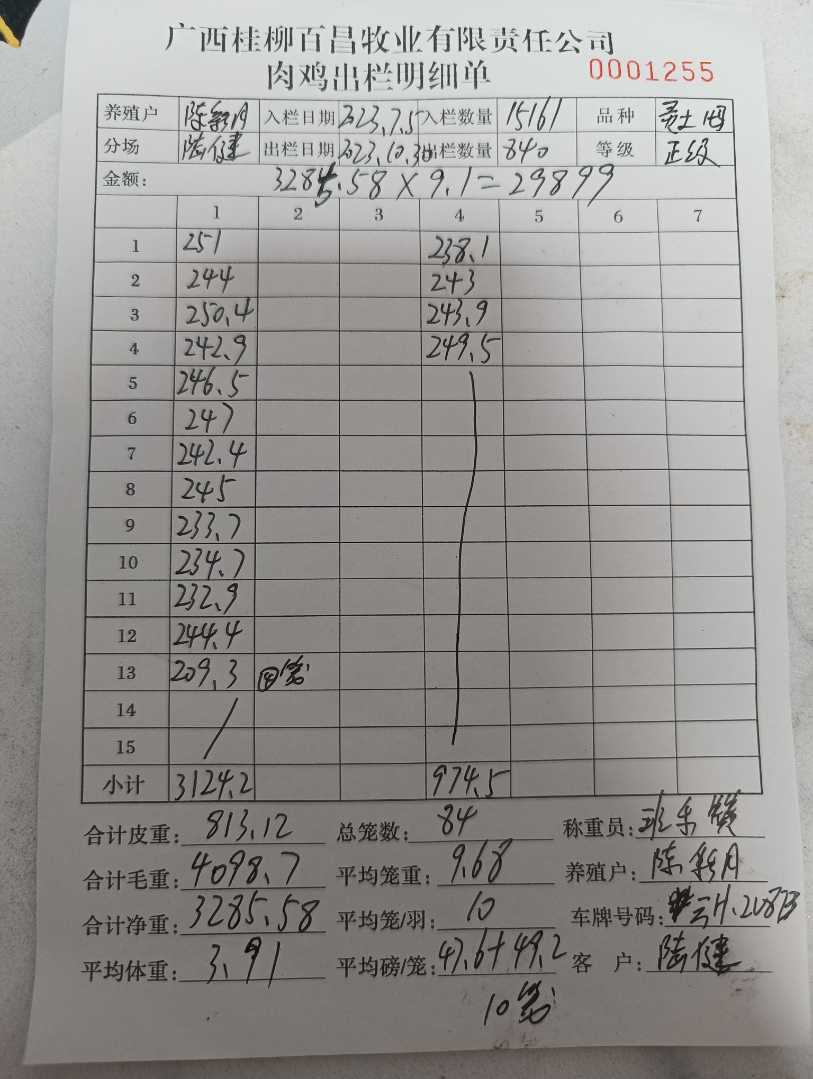 广西桂柳百昌牧业有限责任公司
肉鸡出栏明细单 0001255
养殖户 陈新月 入栏日期 2023.7.5 入栏数量 15161 品种
分场 陆健 出栏日期 2023.10.30 出栏数量 840 等级 正级
金额: 3285.58×9.1=29899
1 2 3 4 5 6 7
1 251 238.1
2 244 243
3 250.4 243.9
4 242.9 249.5
5 246.5
6 247
7 242.4
8 245
9 233.7
10 234.7
11 232.9
12 244.4
13 209.3 ④笼
14
15
小计 3124.2 974.5
合计皮重: 813.12 总笼数: 84 称重员:
合计毛重: 4098.7 平均笼重: 9.68 养殖户: 陈新月
合计净重: 3285.58 平均笼/羽: 10 车牌号码:
平均体重: 3.91 平均磅/笼: 47.6+49.2 客 户: 陆健
10笼